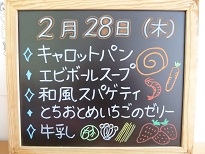 2月28日(木)
◇キャロットパン
◇エビボールスープ
◇和風スパゲティ
◇とちおとめいちごのゼリー
◇牛乳